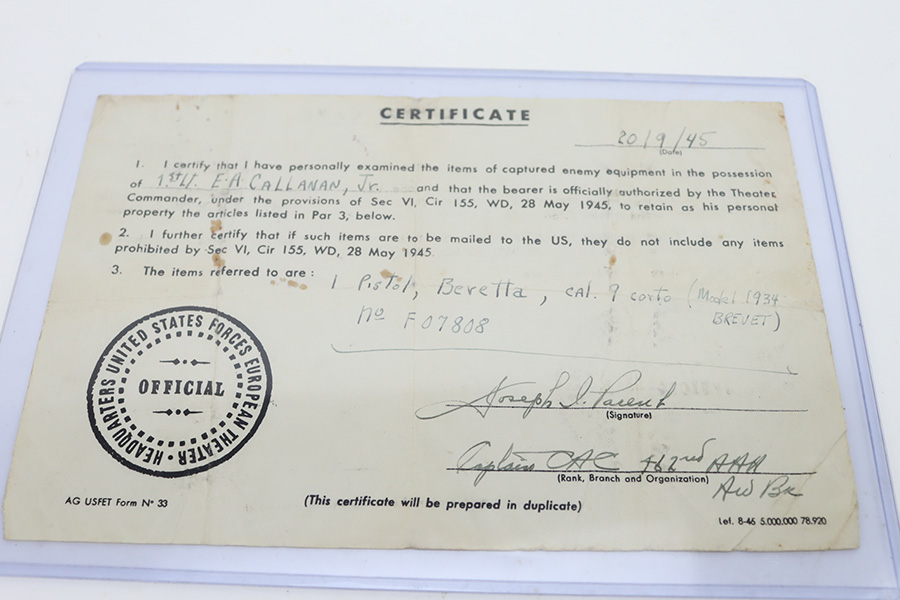 CERTIFICATE
20/9/45
(Date)
1. I certify that I have personally examined the items of captured enemy equipment in the possession
of 1st Lt. E A CALLANAN, Jr. and that the bearer is officially authorized by the Theater
Commander, under the provisions of Sec VI, Cir 155, WD, 28 May 1945, to retain as his personal
property the articles listed in Par 3, below.
2. I further certify that if such items are to be mailed to the US, they do not include any items
prohibited by Sec VI, Cir 155, WD, 28 May 1945.
3. The items referred to are :
1 Pistol, Beretta, cal. 9 corto (Model 1934
BREVET)
No F07808
HEADQUARTERS UNITED STATES FORCES EUROPEAN THEATER
OFFICIAL
Joseph I. Parent
(Signature)
Captain CAC 462nd AAA
(Rank, Branch and Organization)
AW Bn
AG USFET Form No 33
(This certificate will be prepared in duplicate)
Lef. 8-45 5.000.000 78.920